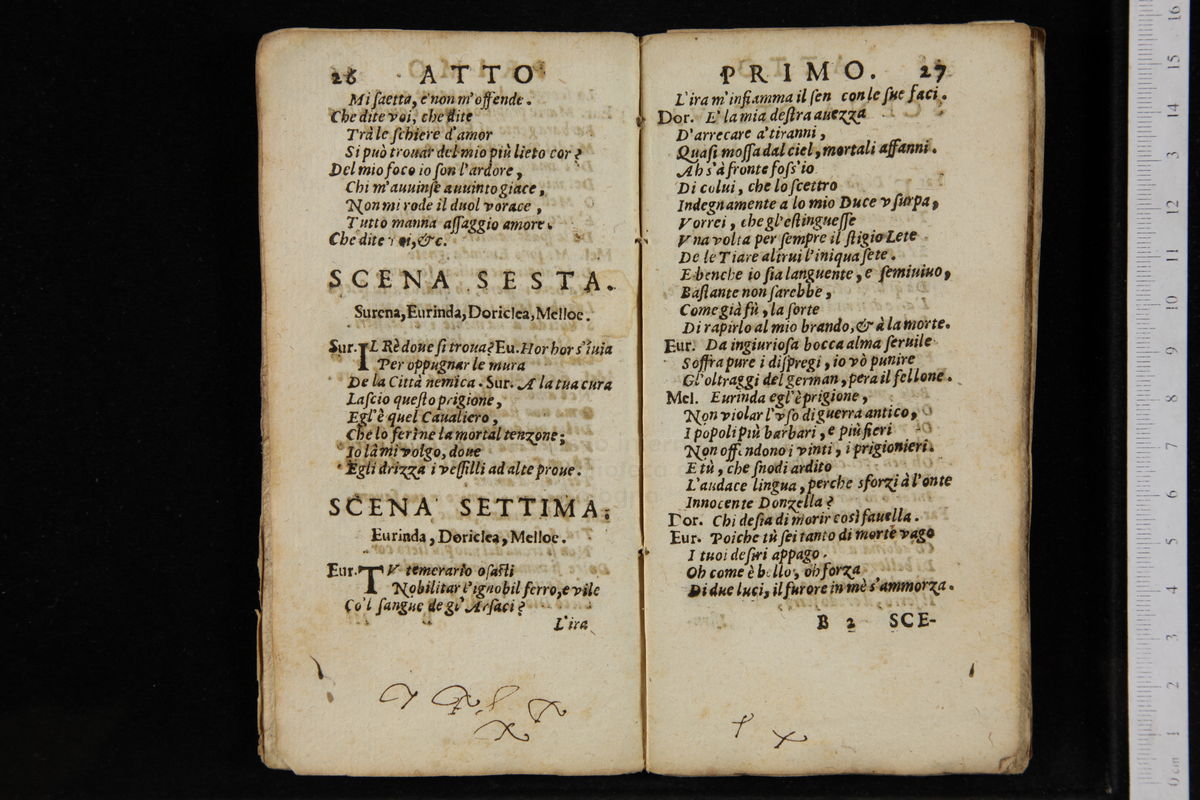 26 ATTO
Mi ſaetta, e non m'offende.
Che dite voi, che dite
Trà le ſchiere d'amor
Si può trouar del mio più lieto cor?
Del mio foco io ſon l'ardore,
Chi m'auuinſe auuinto giace,
Non mi rode il duol vorace,
Tutto manna aſſaggio amore.
Che dite voi, &c.
SCENA SESTA.
Surena, Eurinda, Doriclea, Melloe.
Sur. IL Rè doue ſi troua? Eu. Hor hor s'inuia
Per oppugnar le mura
De la Città nemica. Sur. A la tua cura
Laſcio queſto prigione,
Egl'è quel Caualiero,
Che lo ferì ne la mortal tenzone;
Io là mi volgo, doue
Egli drizza i veſſilli ad alte proue.
SCENA SETTIMA.
Eurinda, Doriclea, Melloe.
Eur. TV temerario oſaſti
Nobilitar l'ignobil ferro, e vile
Co'l ſangue de gl' Arſaci?
L'ira
PRIMO. 27
L'ira m'infiamma il ſen con le ſue faci.
Dor. E' la mia deſtra auezza
D'arrecare a' tiranni,
Quaſi moſſa dal ciel, mortali affanni.
Ah s'à fronte foſs'io
Di colui, che lo ſcettro
Indegnamente a lo mio Duce vſurpa,
Vorrei, che gl'eſtingueſſe
Vna volta per ſempre il ſtigio Lete
De le Tiare altrui l'iniqua ſete.
E benche io ſia languente, e ſemiuiuo,
Baſtante non ſarebbe,
Come già fù, la ſorte
Di rapirlo al mio brando, & à la morte.
Eur. Da ingiurioſa bocca alma ſeruile
Soffra pure i diſpregi, io vò punire
Gl'oltraggi del german, pera il fellone.
Mel. Eurinda egl'è prigione,
Non violar l'vſo di guerra antico,
I popoli più barbari, e più fieri
Non offendono i vinti, i prigionieri.
E tù, che ſnodi ardito
L'audace lingua, perche sforzi à l'onte
Innocente Donzella?
Dor. Chi deſia di morir così fauella.
Eur. Poiche tù ſei tanto di morte vago
I tuoi deſiri appago.
Oh come è bello, oh forza
Di due luci, il furore in mè s'ammorza.
B 2 SCE-